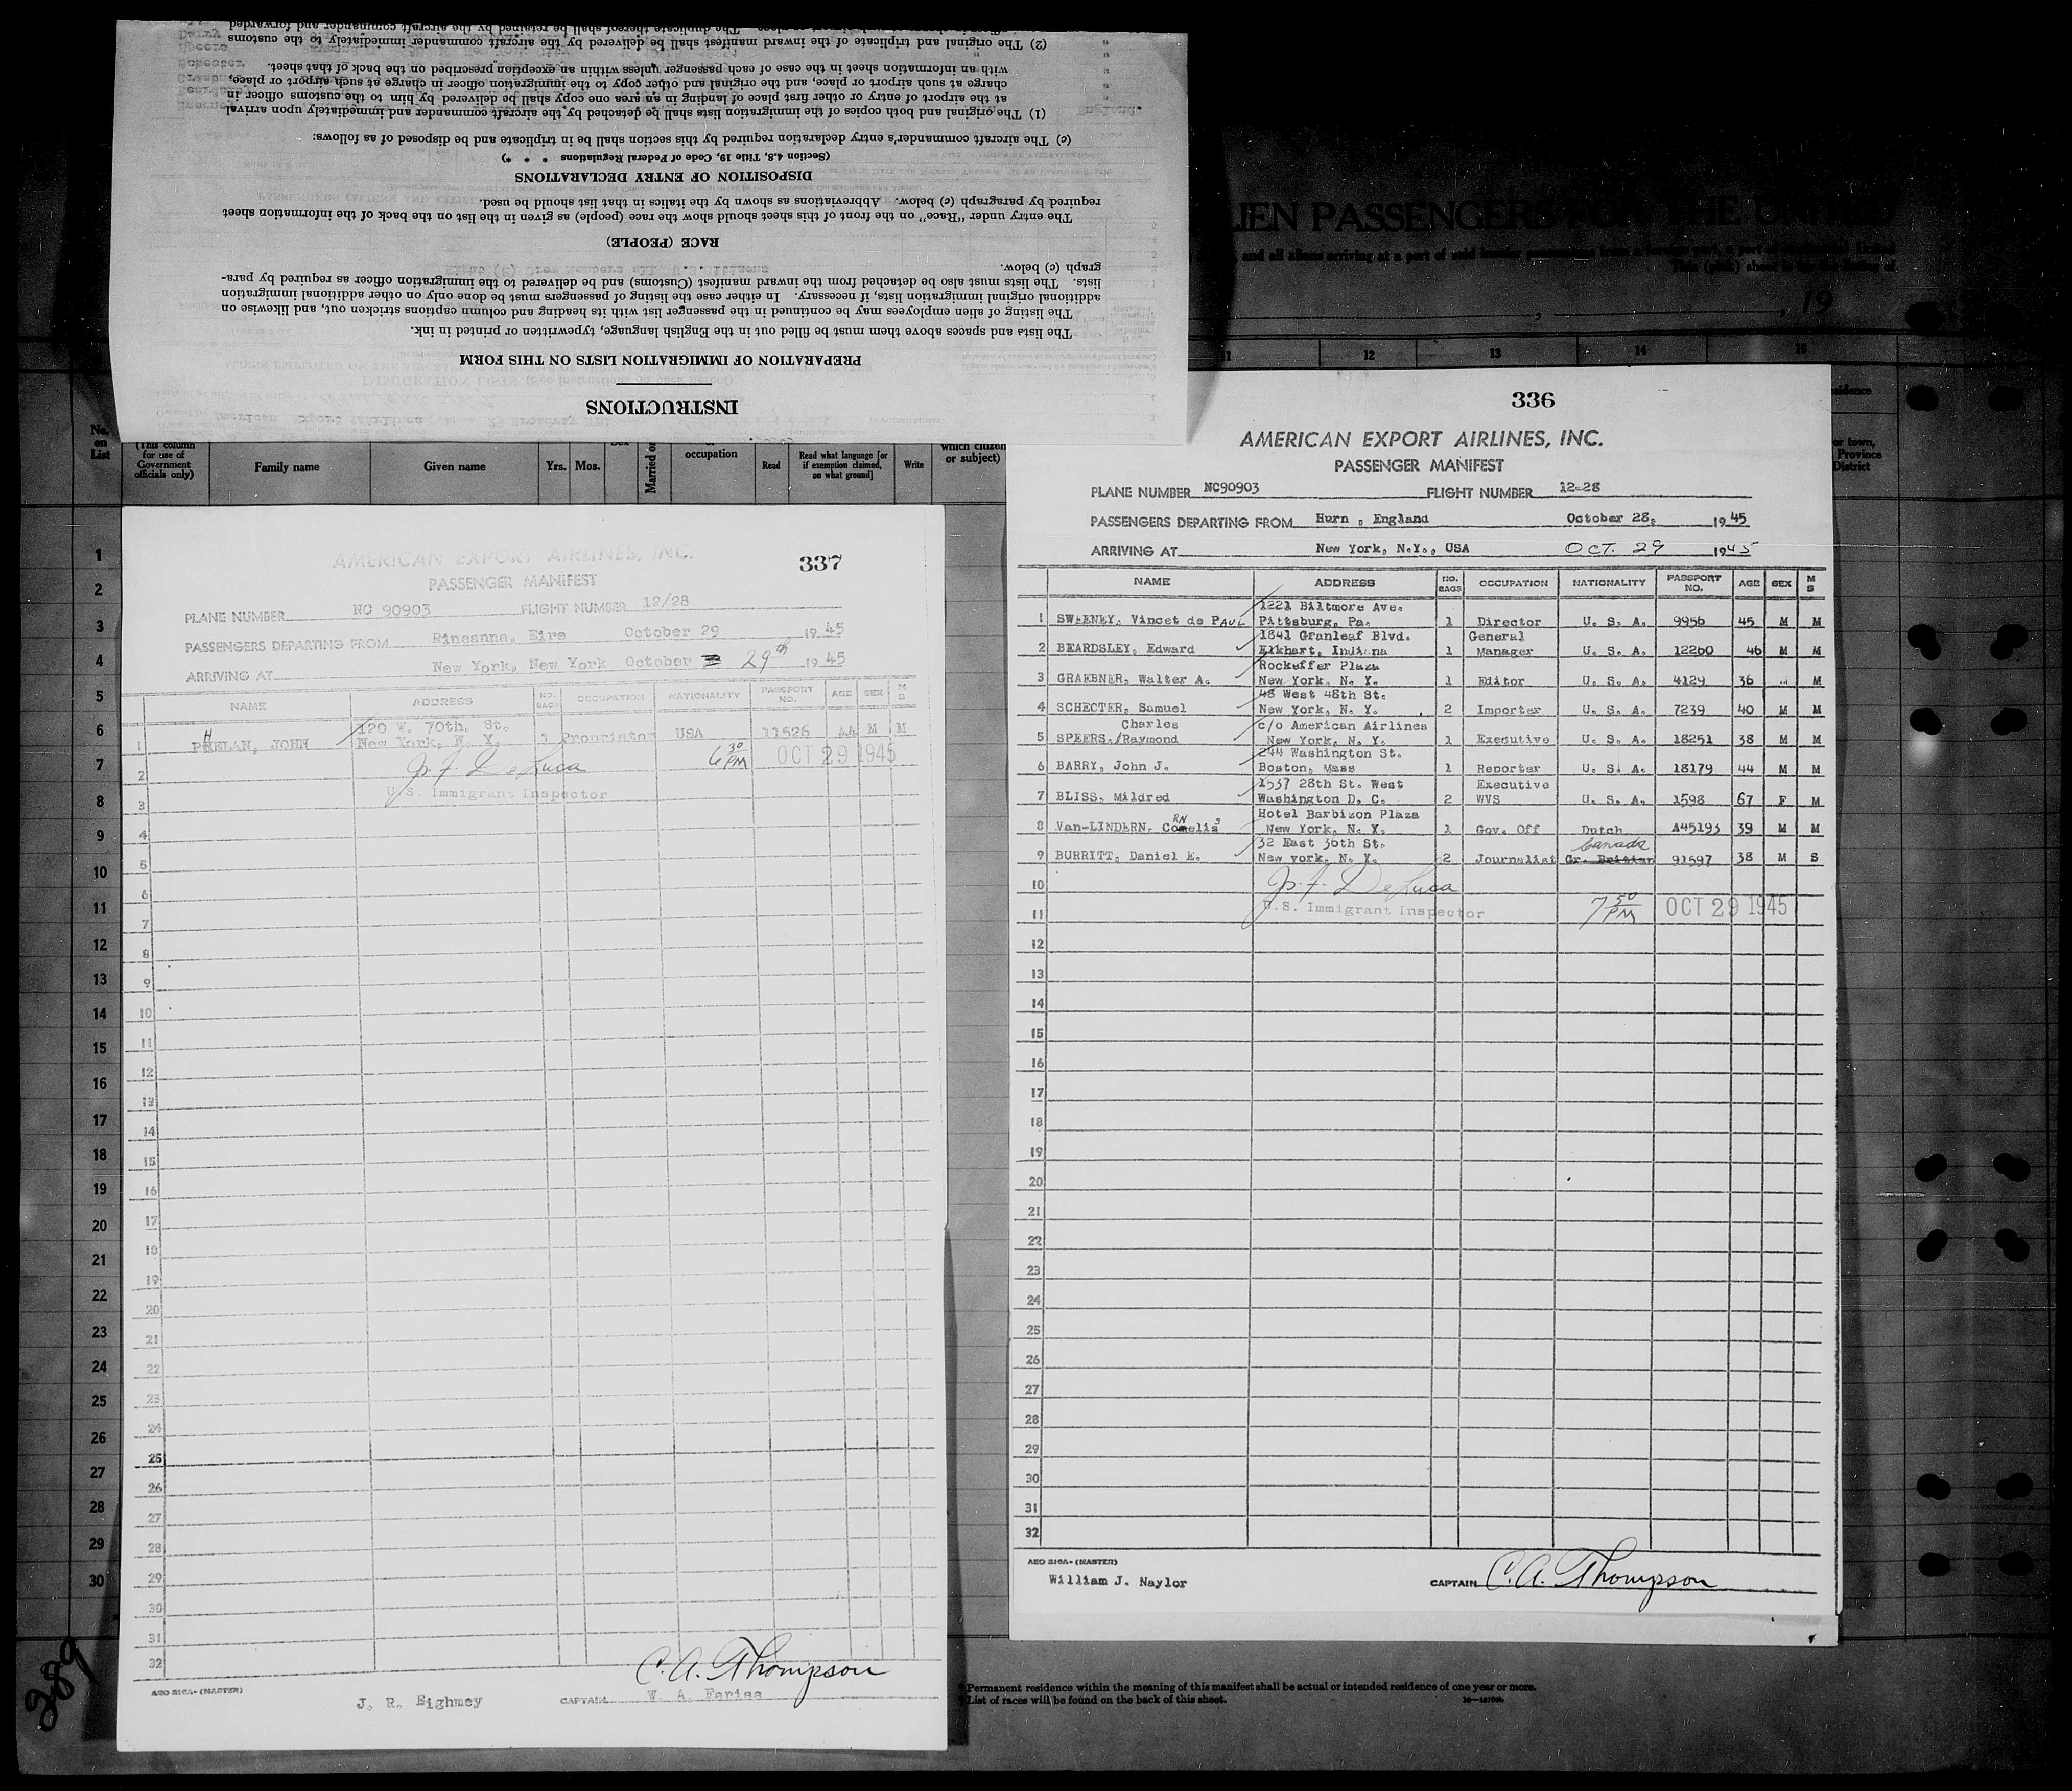 INSTRUCTIONS
PREPARATION OF IMMIGRATION LISTS ON THIS FORM
The lists and spaces above them must be filled out in the English language, typewritten or printed in ink.
The listing of alien employees may be continued in the passenger list with its heading and column captions stricken out, and likewise on
additional original immigration lists, if necessary. In either case the listing of passengers must be done only on other additional immigration
lists. The lists must also be detached from the inward manifest (Customs) and be delivered to the immigration officer as required by para-
graph (c) below.
RACE (PEOPLE)
The entry under "Race" on the front of this sheet should show the race (people) as given in the list on the back of the information sheet
required by paragraph (c) below. Abbreviations as shown by the italics in that list should be used.
DISPOSITION OF ENTRY DECLARATIONS
(Section 4.8, Title 19, Code of Federal Regulations * * *)
(c) The aircraft commander's entry declaration required by this section shall be in triplicate and be disposed of as follows:
(1) The original and both copies of the immigration lists shall be detached by the aircraft commander and immediately upon arrival
at the airport of entry or other first place of landing in an area one copy shall be delivered by him to the customs officer in
charge at such airport or place, and the original and other copy to the immigration officer in charge at such airport or place,
with an information sheet in the case of each passenger unless within an exception prescribed on the back of that sheet.
(2) The original and triplicate of the inward manifest shall be delivered by the aircraft commander immediately to the customs
The duplicate thereof shall be retained by the aircraft commander and forwarded
LIEN PASSENGERS FOR THE UNITED
and all aliens arriving at a port of said insular possessions from a foreign port, a port of continental United
, 19
11 12 13 14 15
No. on List
(This column for use of Government officials only)
Family name
Given name
Yrs. Mos.
Married or
occupation
Read
Read what language [or if exemption claimed, on what ground]
Write
which citizen or subject)
or town,
Province
District
337
AMERICAN EXPORT AIRLINES, INC.
PASSENGER MANIFEST
PLANE NUMBER NC 90903 FLIGHT NUMBER 12/28
PASSENGERS DEPARTING FROM Rineanna, Eire October 29 1945
ARRIVING AT New York, New York October 29th 1945
NAME ADDRESS NO. BAGS OCCUPATION NATIONALITY PASSPORT NO. AGE SEX M S
120 W. 70th. St.
1 PHELAN, JOHN New York, N. Y. 1 Proprietor USA 11526 44 M M
J. F. DeLuca 6 30 PM OCT 29 1945
U.S. Immigrant Inspector
2
3
4
5
6
7
8
9
10
11
12
13
14
15
16
17
18
19
20
21
22
23
24
25
26
27
28
29
30
31
32
C. A. Thompson
AEO 310A- (MASTER)
J. R. Eighmey CAPTAIN W. A. Fariss
336
AMERICAN EXPORT AIRLINES, INC.
PASSENGER MANIFEST
PLANE NUMBER NC90903 FLIGHT NUMBER 12-28
PASSENGERS DEPARTING FROM Hurn , England October 28, 1945
ARRIVING AT New York, N.Y., USA OCT. 29 1945
NAME ADDRESS NO. BAGS OCCUPATION NATIONALITY PASSPORT NO. AGE SEX M S
1221 Biltmore Ave.
1 SWEENEY, Vincet de PAUL Pittsburg, Pa. 1 Director U. S. A. 9956 45 M M
1841 Granleaf Blvd. General
2 BEARDSLEY, Edward Elkhart, Indiana 1 Manager U. S. A. 12260 46 M M
Rockeffer Plaza
3 GRAEBNER, Walter A. New York, N. Y. 1 Editor U. S. A. 4129 36 M
48 West 48th St.
4 SCHECTER, Samuel New York, N. Y. 2 Importer U. S. A. 7239 40 M M
Charles c/o American Airlines
5 SPEERS,/Raymond New York, N. Y. 1 Executive U. S. A. 18251 38 M M
244 Washington St.
6 BARRY, John J. Boston, Mass 1 Reporter U. S. A. 18179 44 M M
1537 28th St. West Executive
7 BLISS, Mildred Washington D. C. 2 WVS U. S. A. 1598 67 F M
Hotel Barbizon Plaza
8 Van-LINDERN, Cornelis New York, N. Y. 1 Gov. Off Dutch A45193 39 M M
32 East 30th St. Canada
9 BURRITT, Daniel E. New york, N. Y. 2 Journalist Gr. Britian 91597 38 M S
10 J. F. DeLuca
11 U.S. Immigrant Inspector 7 50 PM OCT 29 1945
12
13
14
15
16
17
18
19
20
21
22
23
24
25
26
27
28
29
30
31
32
AEO 310A- (MASTER)
William J. Naylor CAPTAIN C. A. Thompson
1
2
3
4
5
6
7
8
9
10
11
12
13
14
15
16
17
18
19
20
21
22
23
24
25
26
27
28
29
30
289
* Permanent residence within the meaning of this manifest shall be actual or intended residence of one year or more.
List of races will be found on the back of this sheet.